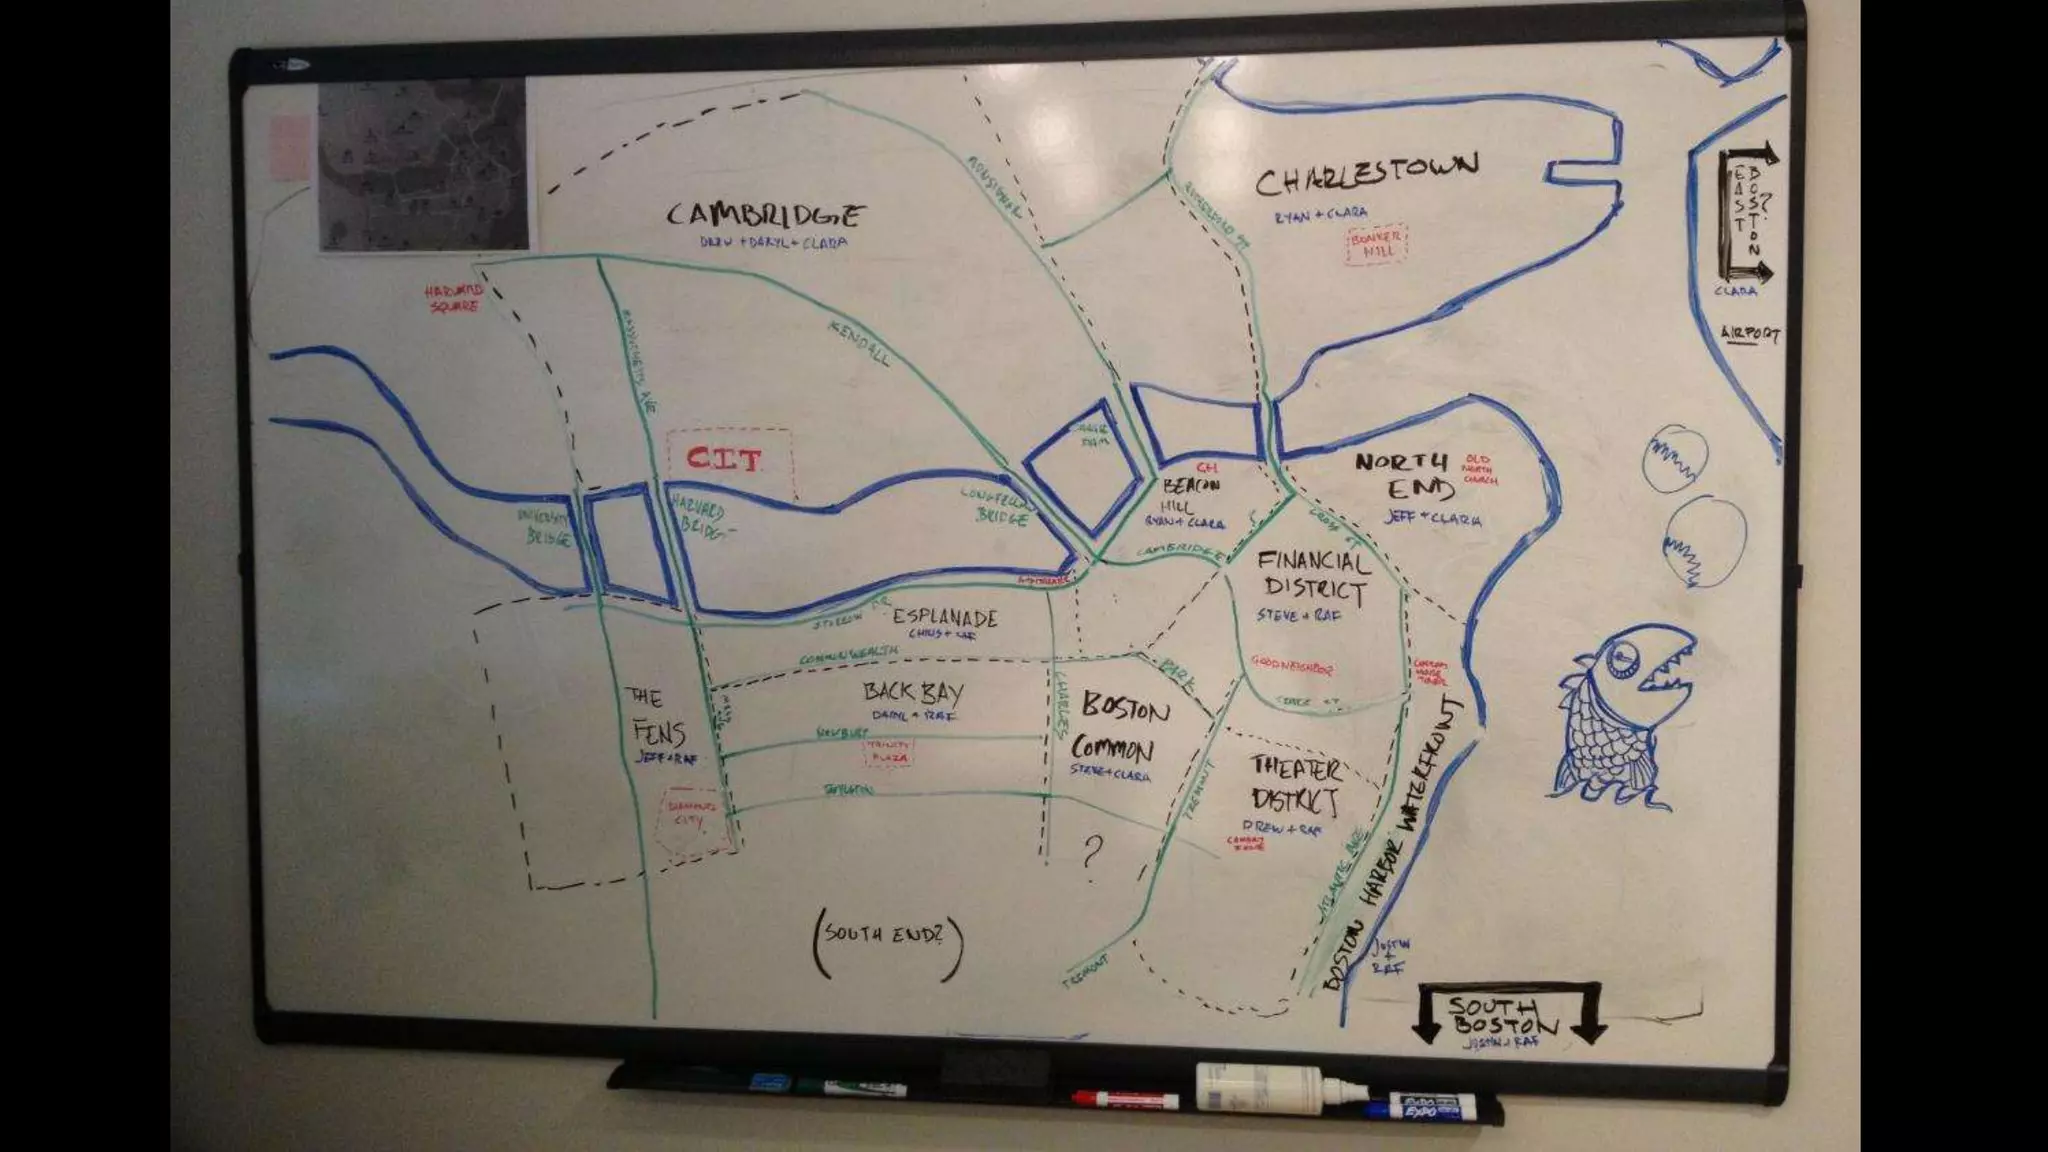 CAMBRIDGE
DREW + DARYL + CLARA
CHARLESTOWN
RYAN + CLARA
BUNKER
HILL
EAST
BOSTON?
CLARA
AIRPORT
HARVARD
SQUARE
MASSACHUSETTS AVE
KENDALL
MONSIGNOR
RUTHERFORD ST
CIT
UNIVERSITY
BRIDGE
HARVARD
BRIDGE
LONGFELLOW
BRIDGE
DAM
CH
BEACON
HILL
RYAN + CLARA
NORTH
END
OLD
NORTH
CHURCH
JEFF + CLARA
CROSS ST
CAMBRIDGE
FINANCIAL
DISTRICT
STEVE + RAF
STORROW DR
ESPLANADE
COMMONWEALTH
GOODNEIGHBOR
CUSTOM
HOUSE
TOWER
PARK
STATE ST
THE
FENS
JEFF + RAF
DIAMOND
CITY
MASS AVE
BACK BAY
DARYL + RAF
NEWBURY
TRINITY
PLAZA
BOYLSTON
CHARLES
BOSTON
COMMON
STEVE + CLARA
?
TREMONT
THEATER
DISTRICT
DREW + RAF
COMBAT
ZONE
ATLANTIC AVE
BOSTON HARBOR WATERFRONT
JUSTIN
+
RAF
(SOUTH END?)
TREMONT
SOUTH
BOSTON
JUSTIN + RAF
EXPO
EXPO